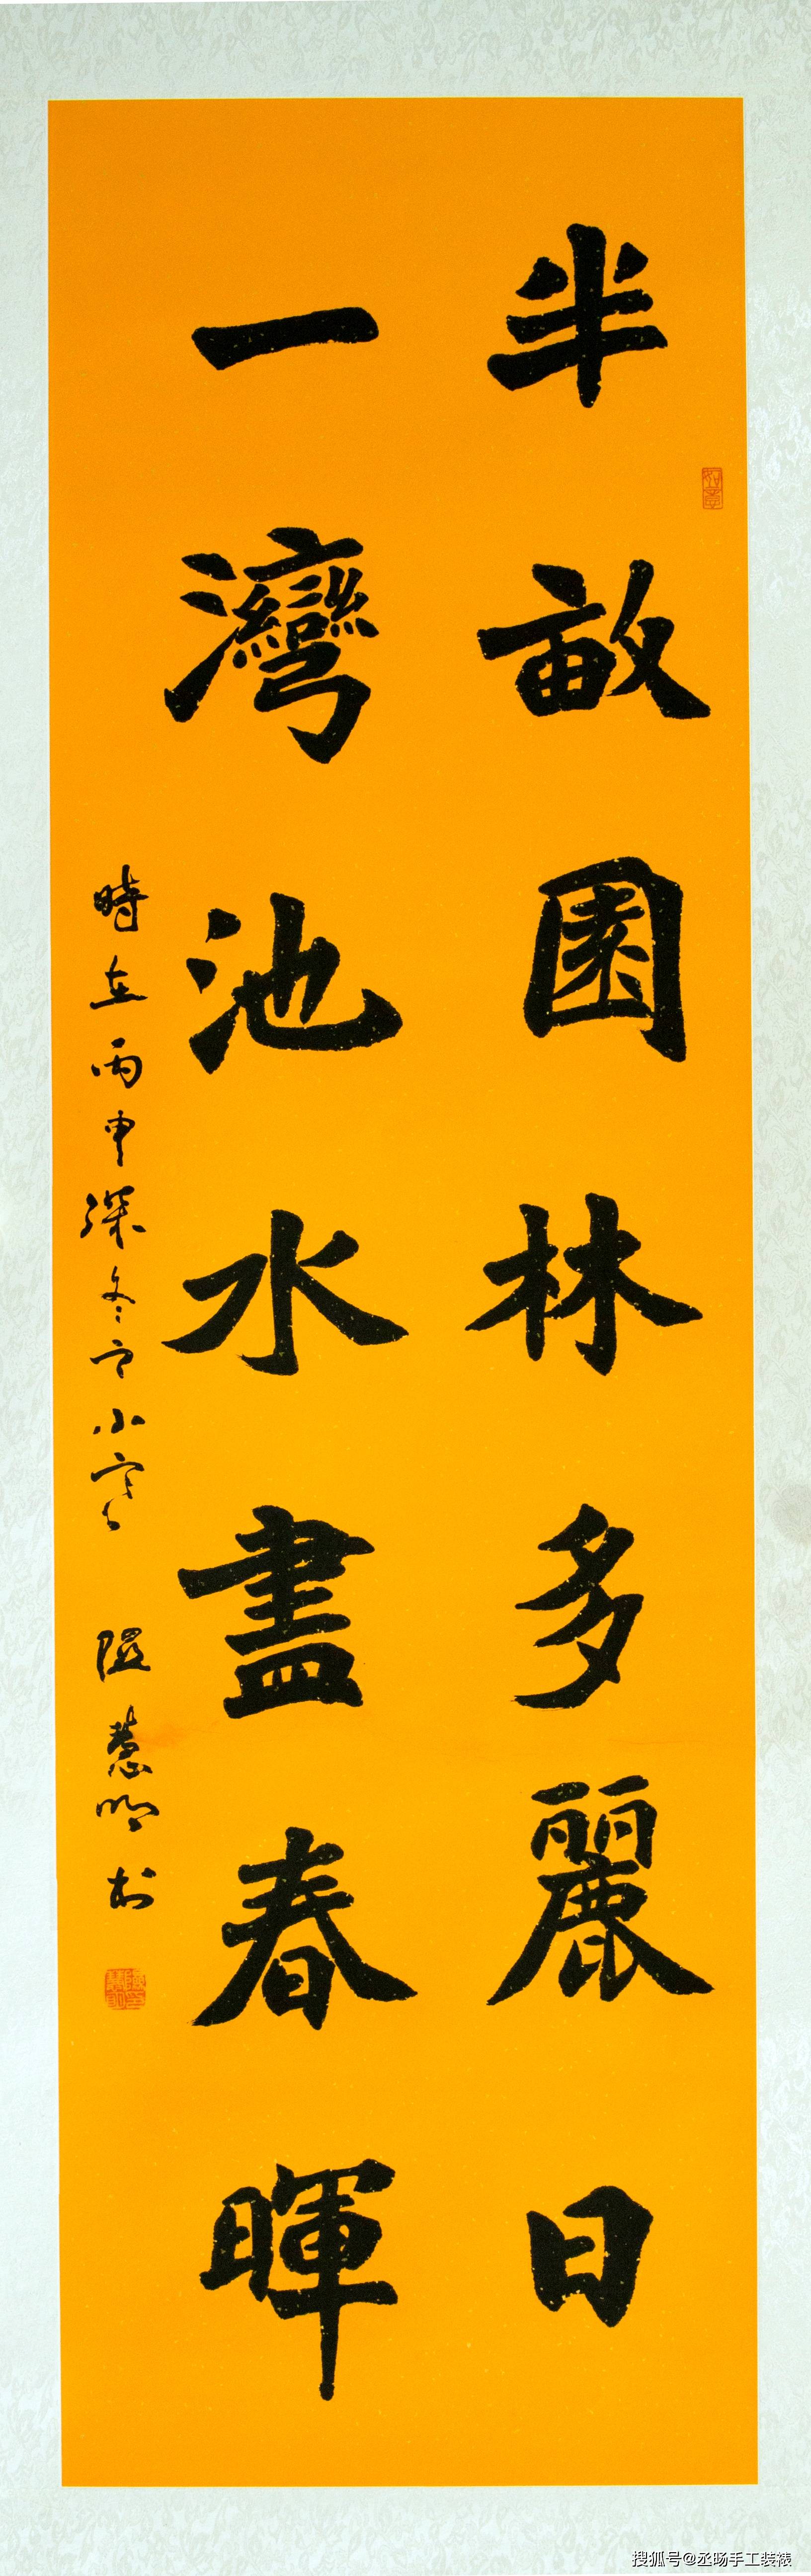 半畝園林多麗日
一灣池水盡春暉
時在丙申深冬之小寒
慧明書
如意
搜狐号@丞旸手工装裱